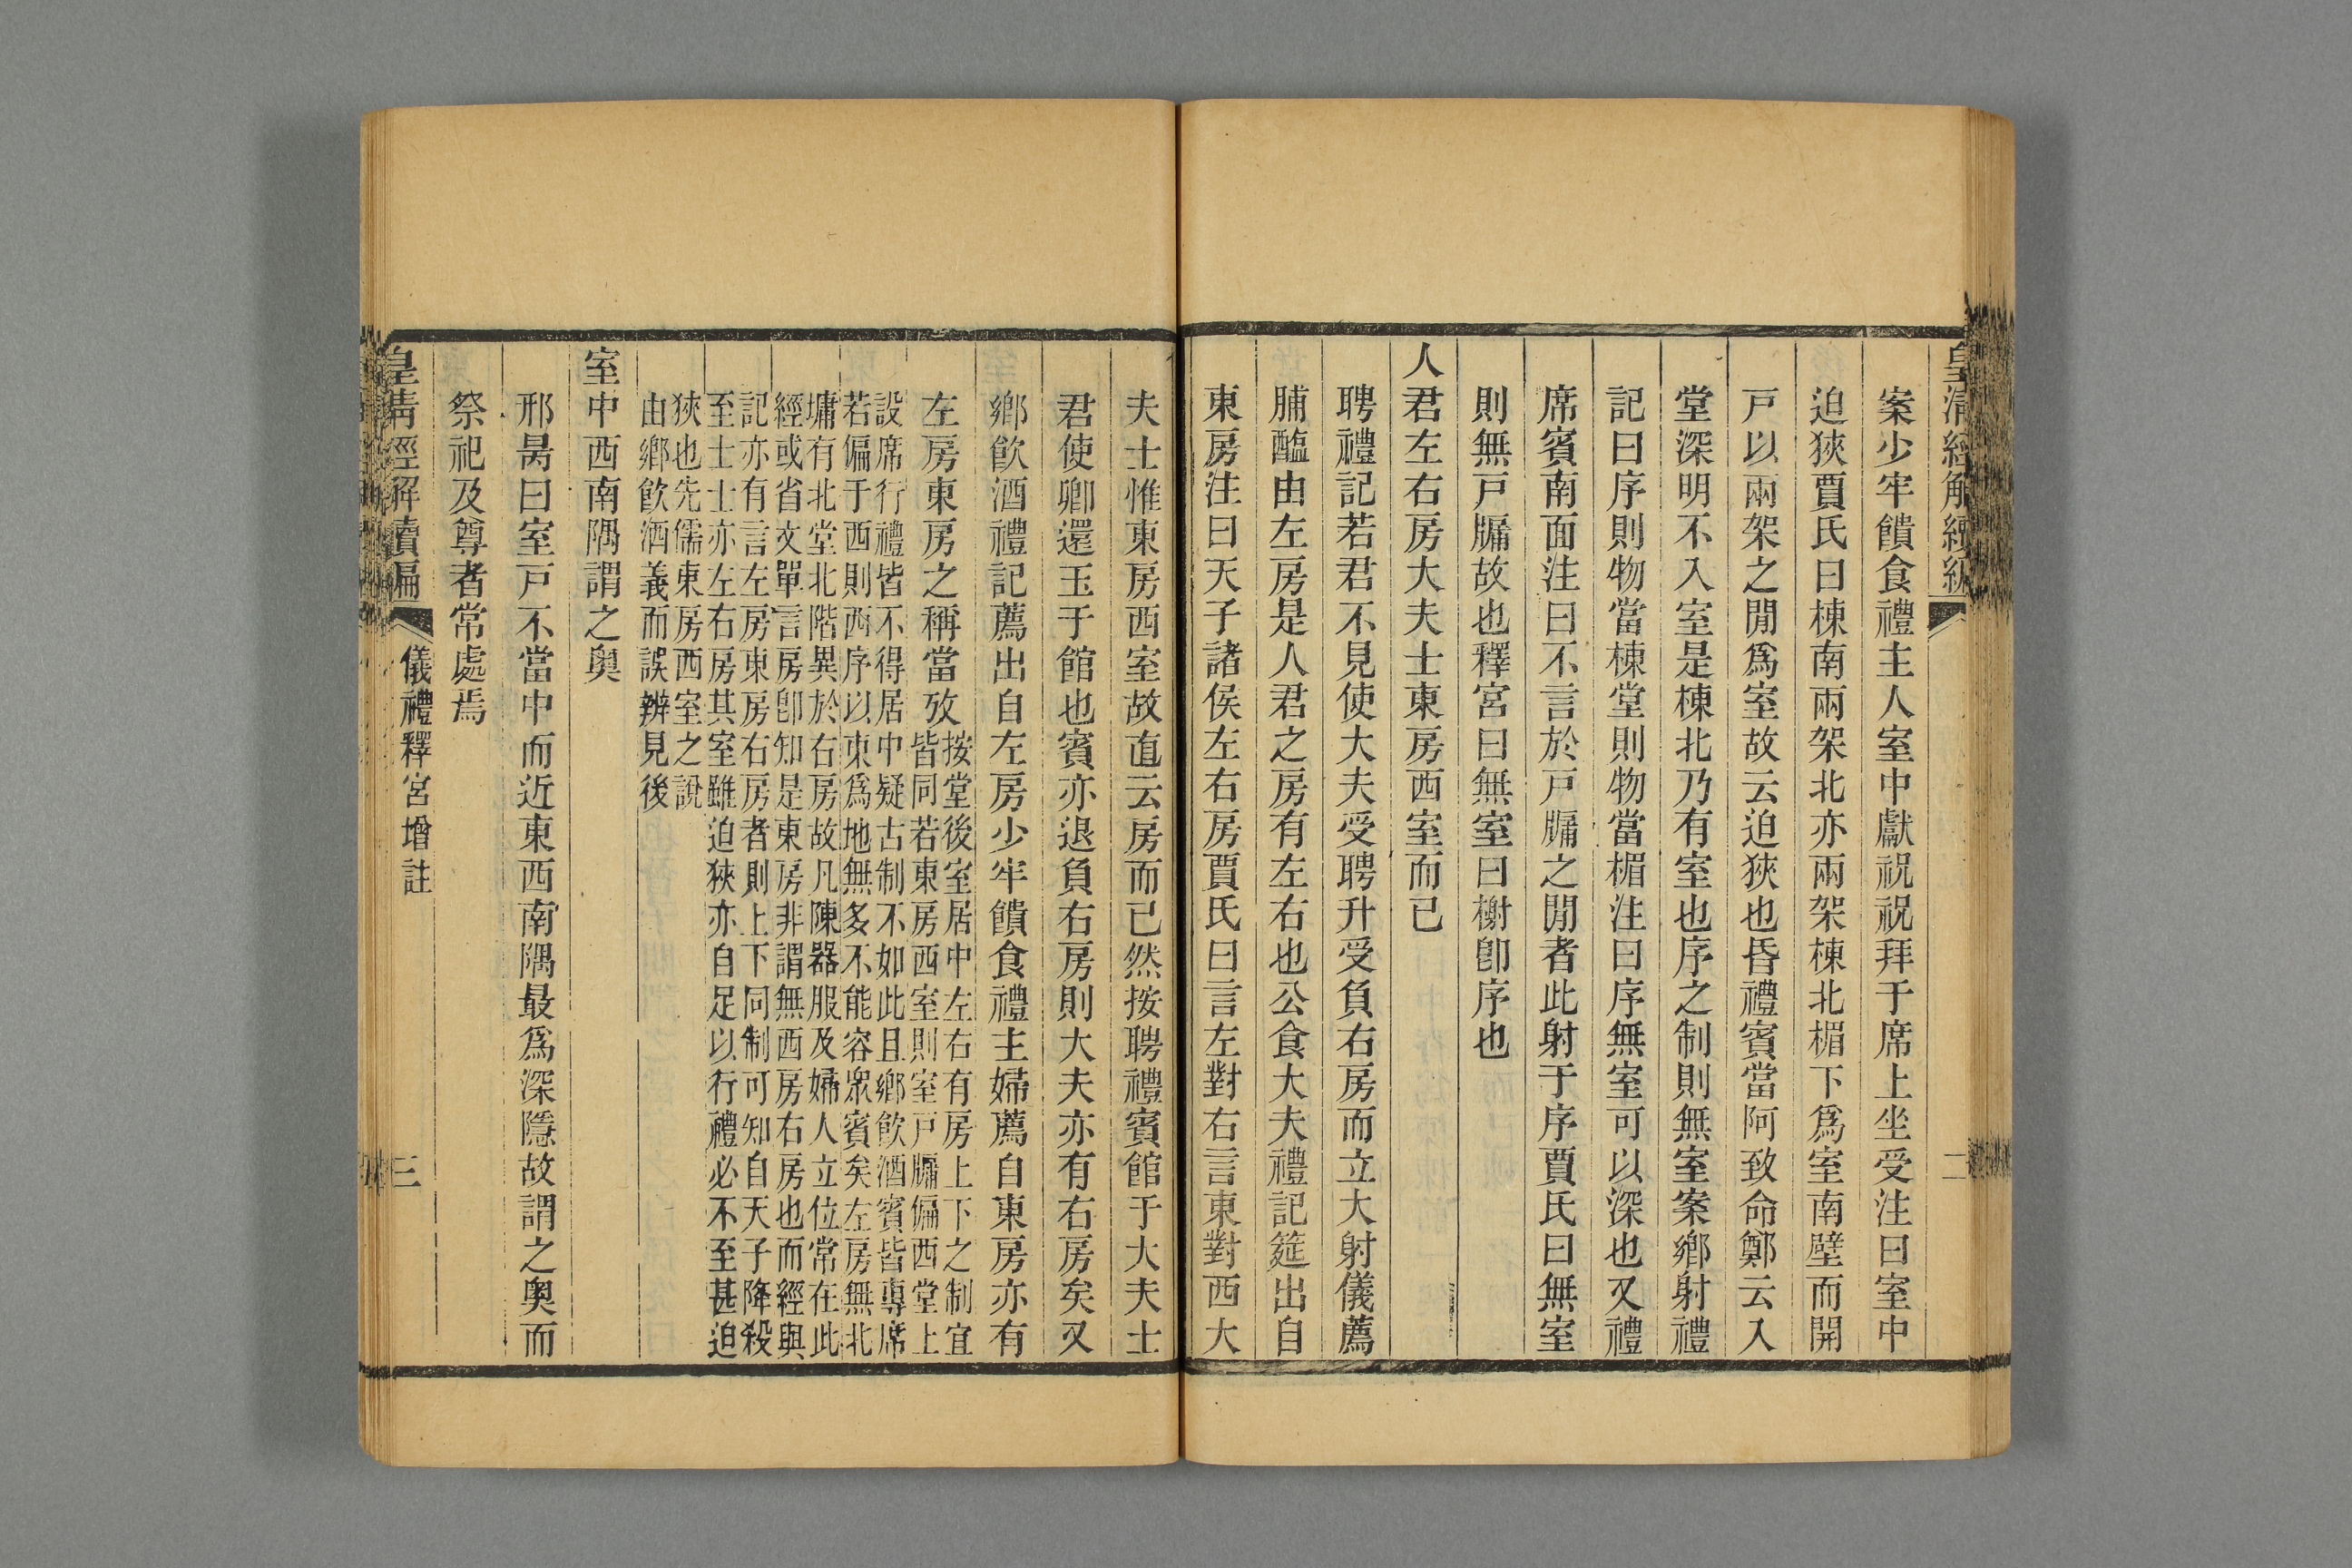 皇清經解續編
二
案少牢饋食禮主人室中獻祝祝拜于席上坐受注曰室中
迫狹賈氏曰棟南兩架北亦兩架棟北楣下爲室南壁而開
戸以兩架之閒爲室故云迫狹也昏禮賓當阿致命鄭云入
堂深明不入室是棟北乃有室也序之制則無室案鄉射禮
記曰序則物當棟堂則物當楣注曰序無室可以深也又禮
席賓南面注曰不言於戸牖之閒者此射于序賈氏曰無室
則無戸牖故也釋宮曰無室曰榭卽序也
人君左右房大夫士東房西室而已
聘禮記若君不見使大夫受聘升受負右房而立大射儀薦
脯醢由左房是人君之房有左右也公食大夫禮記筵出自
東房注曰天子諸侯左右房賈氏曰言左對右言東對西大
夫士惟東房西室故直云房而已然按聘禮賓館于大夫士
君使卿還玉于館也賓亦退負右房則大夫亦有右房矣又
鄉飮酒禮記薦出自左房少牢饋食禮主婦薦自東房亦有
左房東房之稱當攷
按堂後室居中左右有房上下之制宜
皆同若東房西室則室戸牖偏西堂上
設席行禮皆不得居中疑古制不如此且鄉飮酒賓皆專席
若偏于西則西序以東爲地無多不能容眾賓矣左房無北
墉有北堂北階異於右房故凡陳器服及婦人立位常在此
經或省文單言房卽知是東房非謂無西房右房也而經與
記亦有言左房東房右房者則上下同制可知自天子降殺
至士士亦左右房其室雖迫狹亦自足以行禮必不至甚迫
狹也先儒東房西室之說
由鄉飮酒義而誤辨見後
室中西南隅謂之奧
邢昺曰室戸不當中而近東西南隅最爲深隱故謂之奧而
祭祀及尊者常處焉
皇清經解續編
儀禮釋宮增註
三